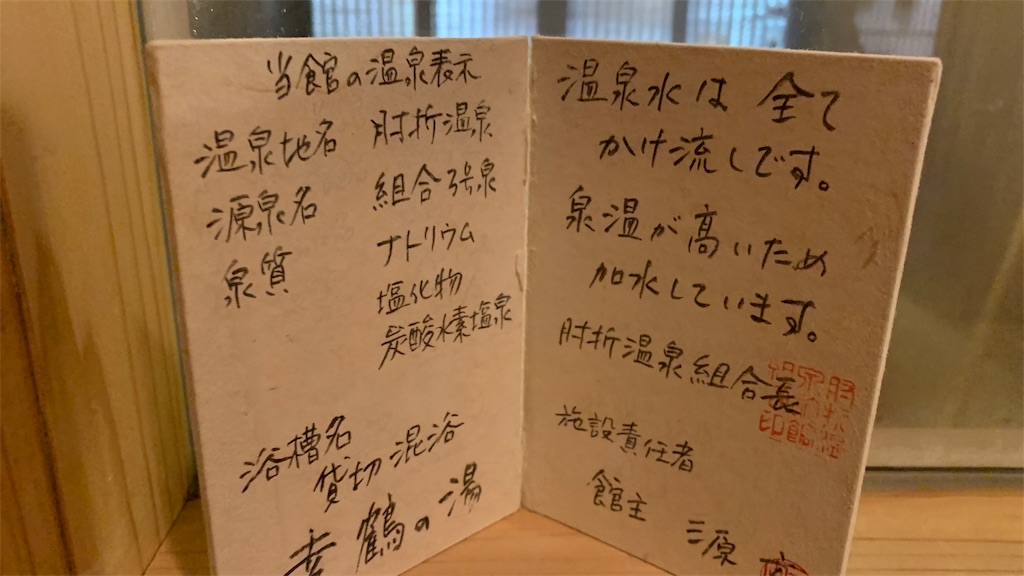 当館の温泉表示
温泉地名 肘折温泉
源泉名 組合3号泉
泉質 ナトリウム
塩化物
炭酸水素塩泉
浴槽名
貸切 混浴
幸鶴の湯
温泉水は 全て
かけ流しです。
泉温が高いため
加水しています。
肘折温泉組合長
施設責任者
館主 三原